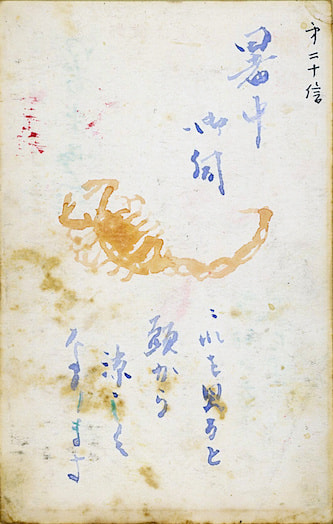 第二十信
暑中
御伺
これを見ると
頭から
涼しく
なります